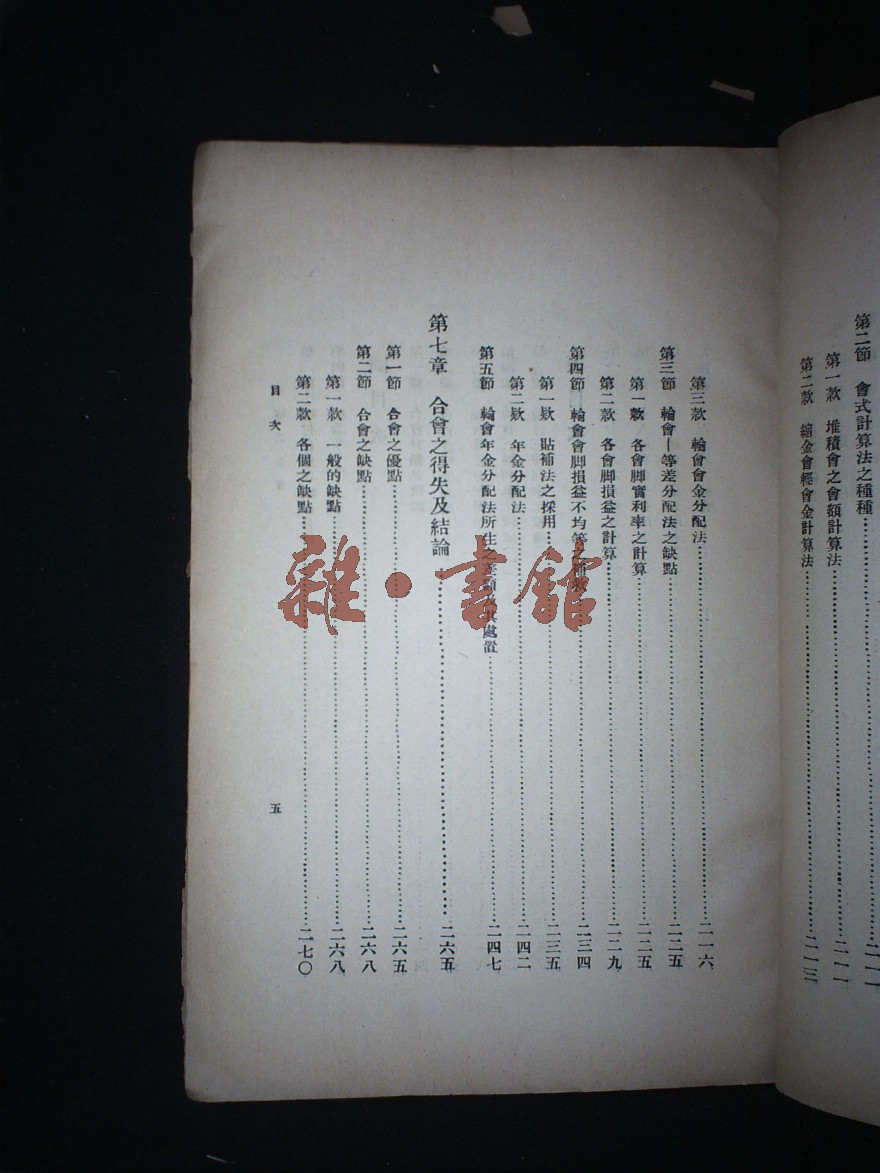 第二節　會式計算法之種種……二一一
第一款　堆積會之會額計算法……二一一
第二款　縮金會輕會金計算法……二一三
第三款　輪會會金分配法……二一六
第三節　輪會—等差分配法之缺點……二二五
第一款　各會脚實利率之計算……二二五
第二款　各會脚損益之計算……二二九
第四節　輪會會脚損益不均等之補救……二三四
第一款　貼補法之採用……二三五
第二款　年金分配法……二四二
第五節　輪會年金分配法所生之差額及其處置……二四七
第七章　合會之得失及結論……二六五
第一節　合會之優點……二六五
第二節　合會之缺點……二六八
第一款　一般的缺點……二六八
第二款　各個之缺點……二七〇
目次
五
雜·書館